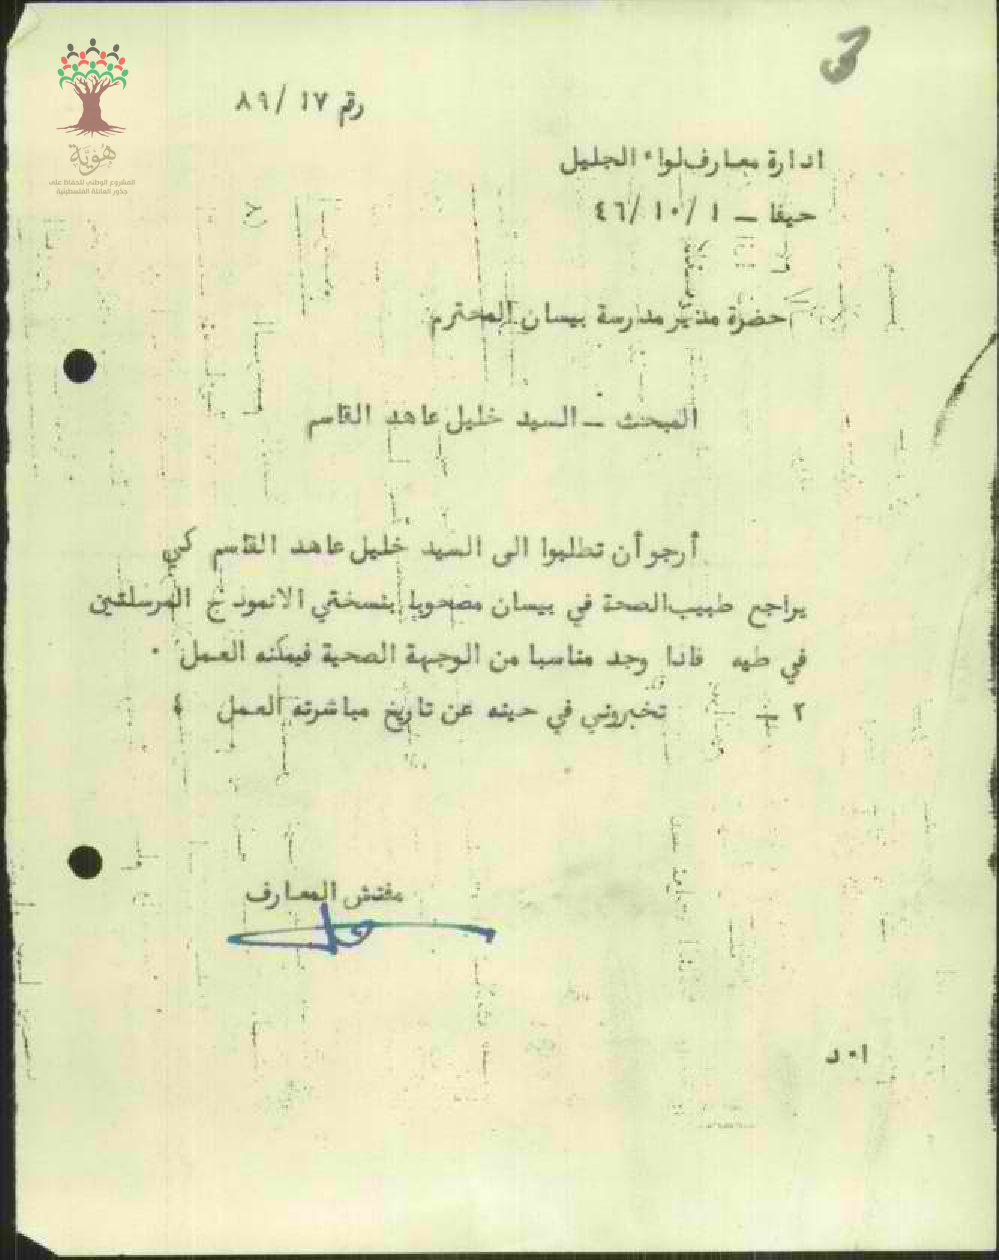 3
هوية
المشروع الوطني للحفاظ على
جذور العائلة الفلسطينية
رقم ١٧ /٨٩
ادارة معارف لواء الجليل
حيفا – ١ /١٠ /٤٦
حضرة مدير مدرسة بيسان المحترم
المبحث – السيد خليل عاهد القاسم
أرجو أن تطلبوا الى السيد خليل عاهد القاسم كي
يراجع طبيب الصحة في بيسان مصحوبا بنسختي الانموذج المرسلتين
في طيه فاذا وجد مناسبا من الوجهة الصحية فيمكنه العمل ٠
٢ – تخبروني في حينه عن تاريخ مباشرته العمل
مفتش المعارف
ا٠ د